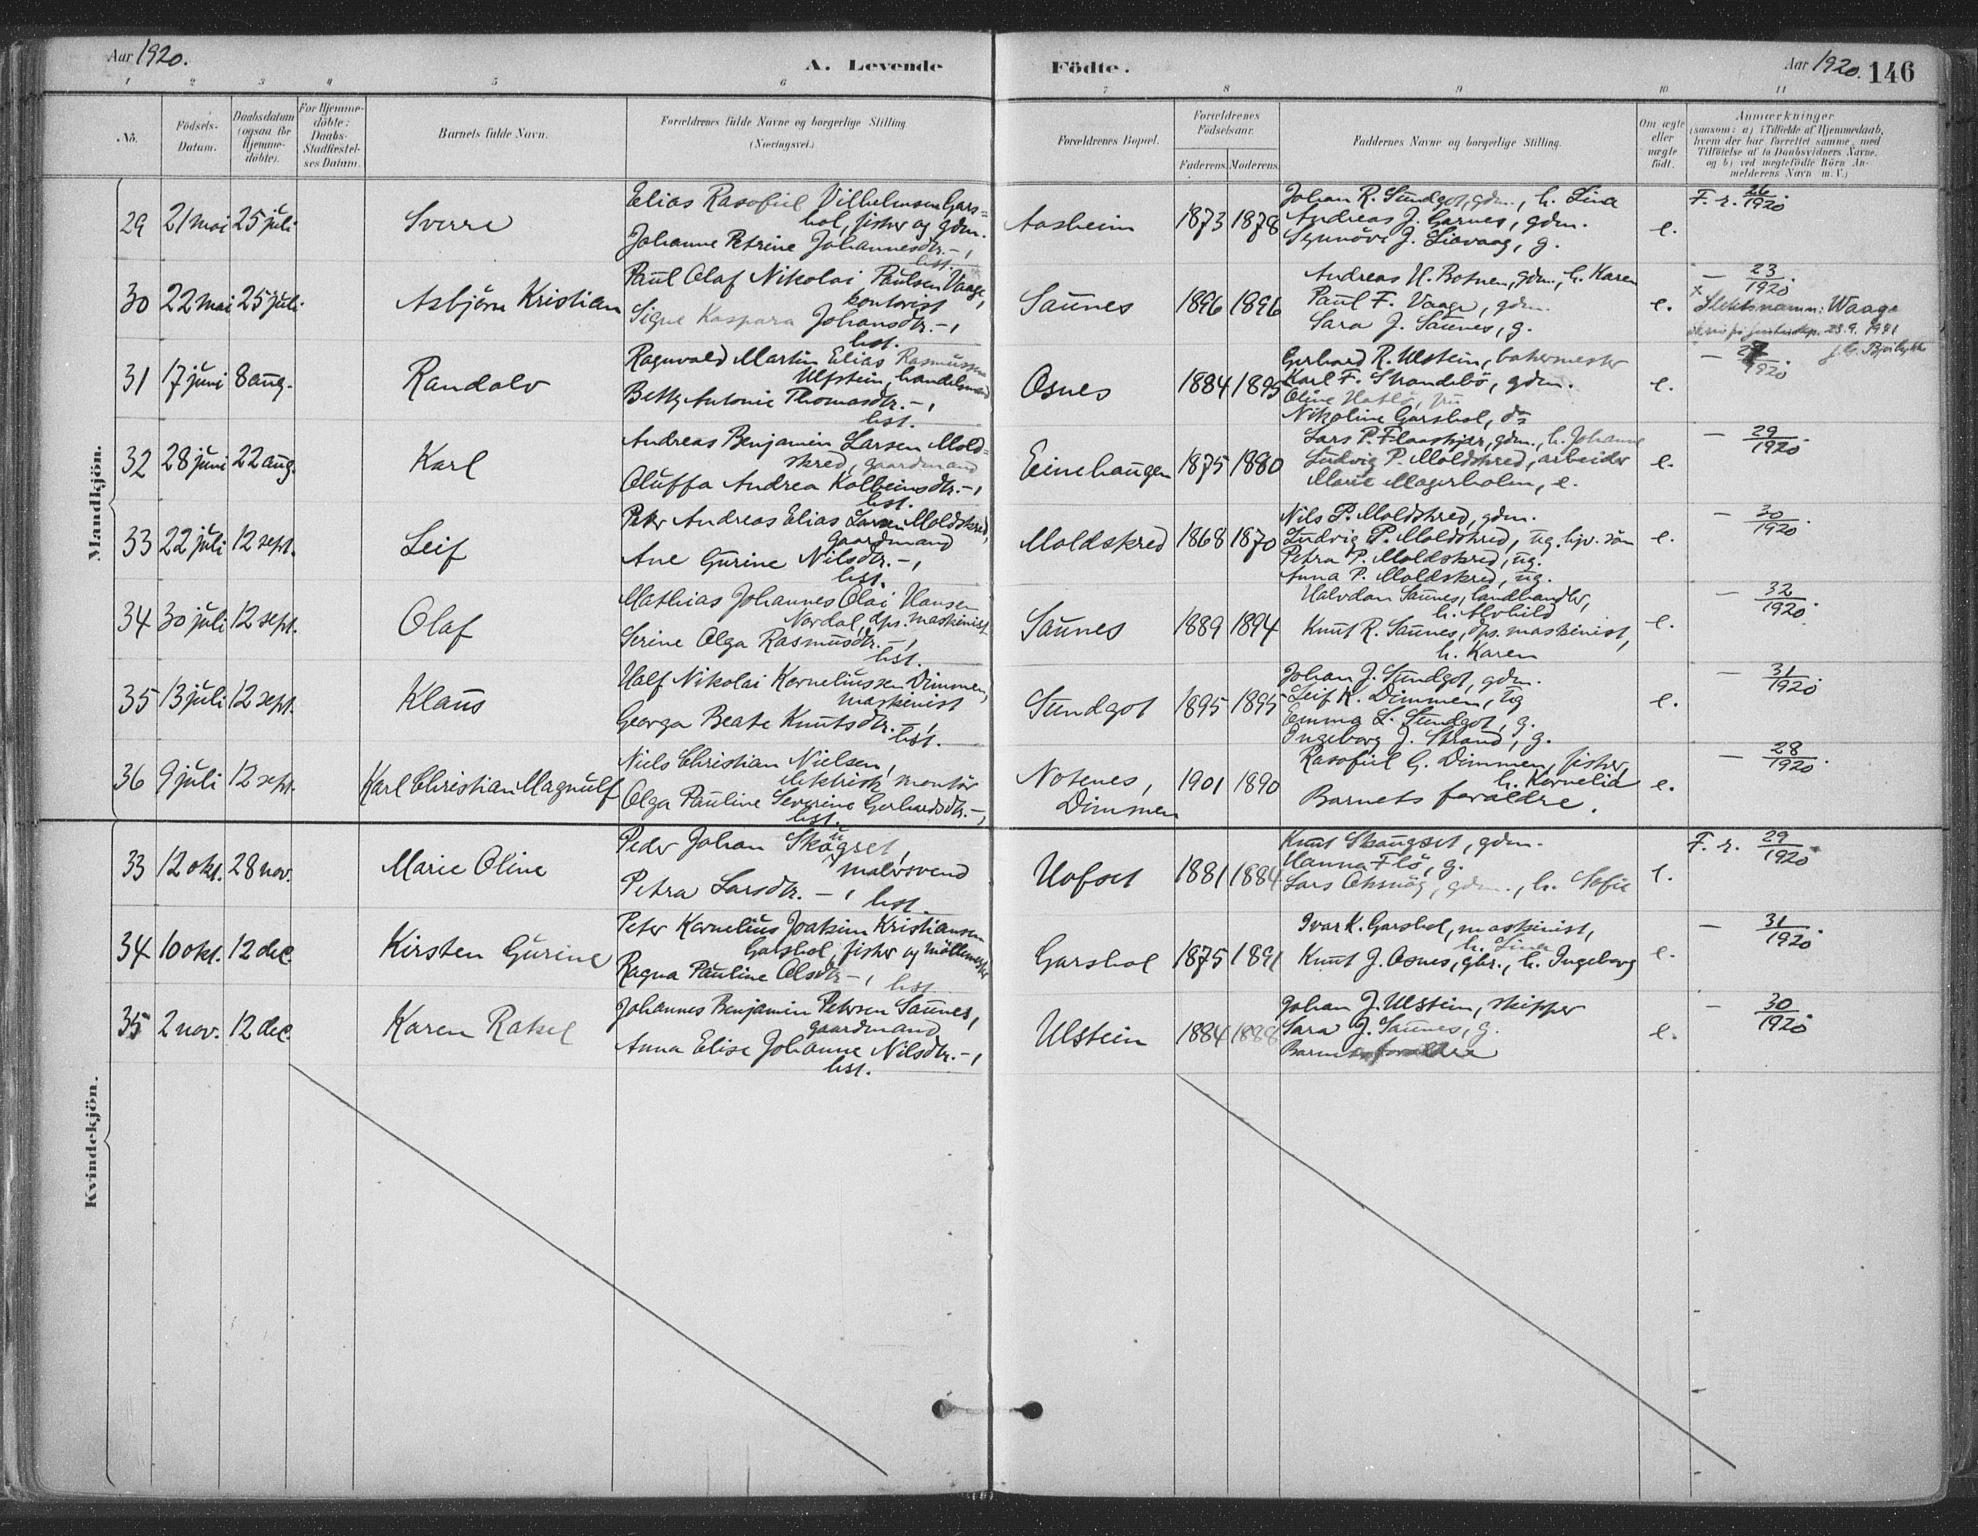 Aar 1920.
A. Levende Födte.
Aar 1920. 146
1 2 3 4 5 6 7 8 9 10 11
No.
Födsels-
Datum.
Daabsdatum
(ogsaa for
Hjemme-
döbte).
For Hjemme-
döbte:
Daabs-
Stadfæstel-
ses Datum.
Barnets fulde Navn.
Forældrenes fulde Navne og borgerlige Stilling.
(Næringsvei.)
Forældrenes Bopæl.
Forældrenes
Födselsaar.
Faderens. Moderens.
Faddernes Navne og borgerlige Stilling.
Om ægte
eller
uægte
födt.
Anmærkninger
(saasom: a) i Tilfælde af Hjemmedaab,
hvem der har forrettet samme, med
Tilföielse af to Daabsvidners Navne,
og b) ved uægtefödte Börn An-
melderens Navn m. V.)
Mandkjön.
29 21 mai 25 juli
Sverre
Elias Rasofiel Vilhelmsen Gars=
hol, fisker og gdm.
Johanne Petrine Johannesdtr. -,
hst.
Aasheim
1873 1878
Johan R. Sundgot, gdm., h. Lina
Andreas J. Garnes, gdm.
Synnöve J. Liavaag, g.
e.
F. r. 26/1920.
30 22 mai 25 juli
Asbjörn Kristian
Paul Olaf Nikolai Paulsen Vaage,
kontorist
Signe Kaspara Johansdtr. -,
hst.
Saunes
1896 1896
Andreas H. Botnen, gdm., h. Karen
Paul F. Vaage, gdm.
Sara J. Saunes, g.
e.
- 23/1920.
x Slektsnamn: Waage
23.9.1941
31 17 juni 8 aug.
Randolv
Ragnvald Martin Elias Rasmussen
Ulfstein, handelsmand
Betty Antonie Thomasdtr. -,
hst.
Osnes
1884 1895
Gerhard R. Ulstein, bakermester
Karl F. Strandebö, gdm.
Oline Hatlö, fru
Nikoline Garshol, do
e.
- 27/1920
32 28 juni 22 aug.
Karl
Andreas Benjamin Larsen Mold=
skred, gaardmand
Oluffa Andrea Kolbeinsdtr. -,
hst.
Einehaugen
1875 1880
Lars P. Flaaskjær, gdm., h. Johanne
Ludvig P. Moldskred, arbeider
Marie Magerholm, e.
e.
- 29/1920.
33 22 juli 12 sept.
Leif
Peter Andreas Elias Larsen Moldskred,
gaardmand
Ane Gurine Nilsdtr. -,
hst.
Moldskred
1868 1870
Nils P. Moldskred, gdm.
Ludvig P. Moldskred, ug. hjv. sön
Petra P. Moldskred, ug.
Anna P. Moldskred, ug.
e.
- 30/1920.
34 30 juli 12 sept.
Olaf
Mathias Johannes Olai Hansen
Nordal, dps. maskinist
Serine Olga Rasmusdtr. -,
hst.
Saunes
1889 1894
Halvdan Saunes, landhandler,
h. Alvhild
Knut R. Saunes, dps. maskinist,
h. Karen
e.
- 32/1920.
35 13 juli 12 sept.
Klaus
Half Nikolai Korneliussen Dimmen,
maskinist
Georga Beate Knutsdtr. -,
hst.
Sundgot
1895 1895
Johan J. Sundgot, gdm.
Leif K. Dimmen, ug
Emma L. Sundgot, g.
Ingeborg J. Strand, g.
e.
- 31/1920.
36 9 juli 12 sept.
Karl Christian Magnulf
Niels Christian Nielsen,
elektrisk montör
Olga Pauline Severine Gerhardsdtr. -,
hst.
Notenes,
Dimmen
1901 1890
Rasofiel G. Dimmen, fisker,
h. Kornelia
Barnets forældre.
e.
- 28/1920.
Kvindekjön.
33 12 okt. 28 nov.
Marie Oline
Peder Johan Skaugset,
malersvend
Petra Larsdtr. -,
hst.
Hofset
1881 1884
Knut Skaugset, gdm.
Hanna Flö, g.
Lars Oksnög, gdm., h. Sofie
e.
F. r. 29/1920.
34 10 okt. 12 dec.
Kirsten Gurine
Peter Kornelius Joakim Kristiansen
Garshol, fisker og möllemester
Ragna Pauline Olsdtr. -,
hst.
Garshol
1875 1891
Ivar K. Garshol, maskinist,
h. Lina
Knut J. Osnes, gbr., h. Ingeborg
e.
- 31/1920.
35 2 nov. 12 dec.
Karen Rakel
Johannes Benjamin Petersen Saunes,
gaardmand
Anna Elise Johanne Nilsdtr. -,
hst.
Ulstein
1884 1888
Johan J. Ulstein, skipper
Sara J. Saunes, g.
Barnets forældre
e.
- 30/1920.